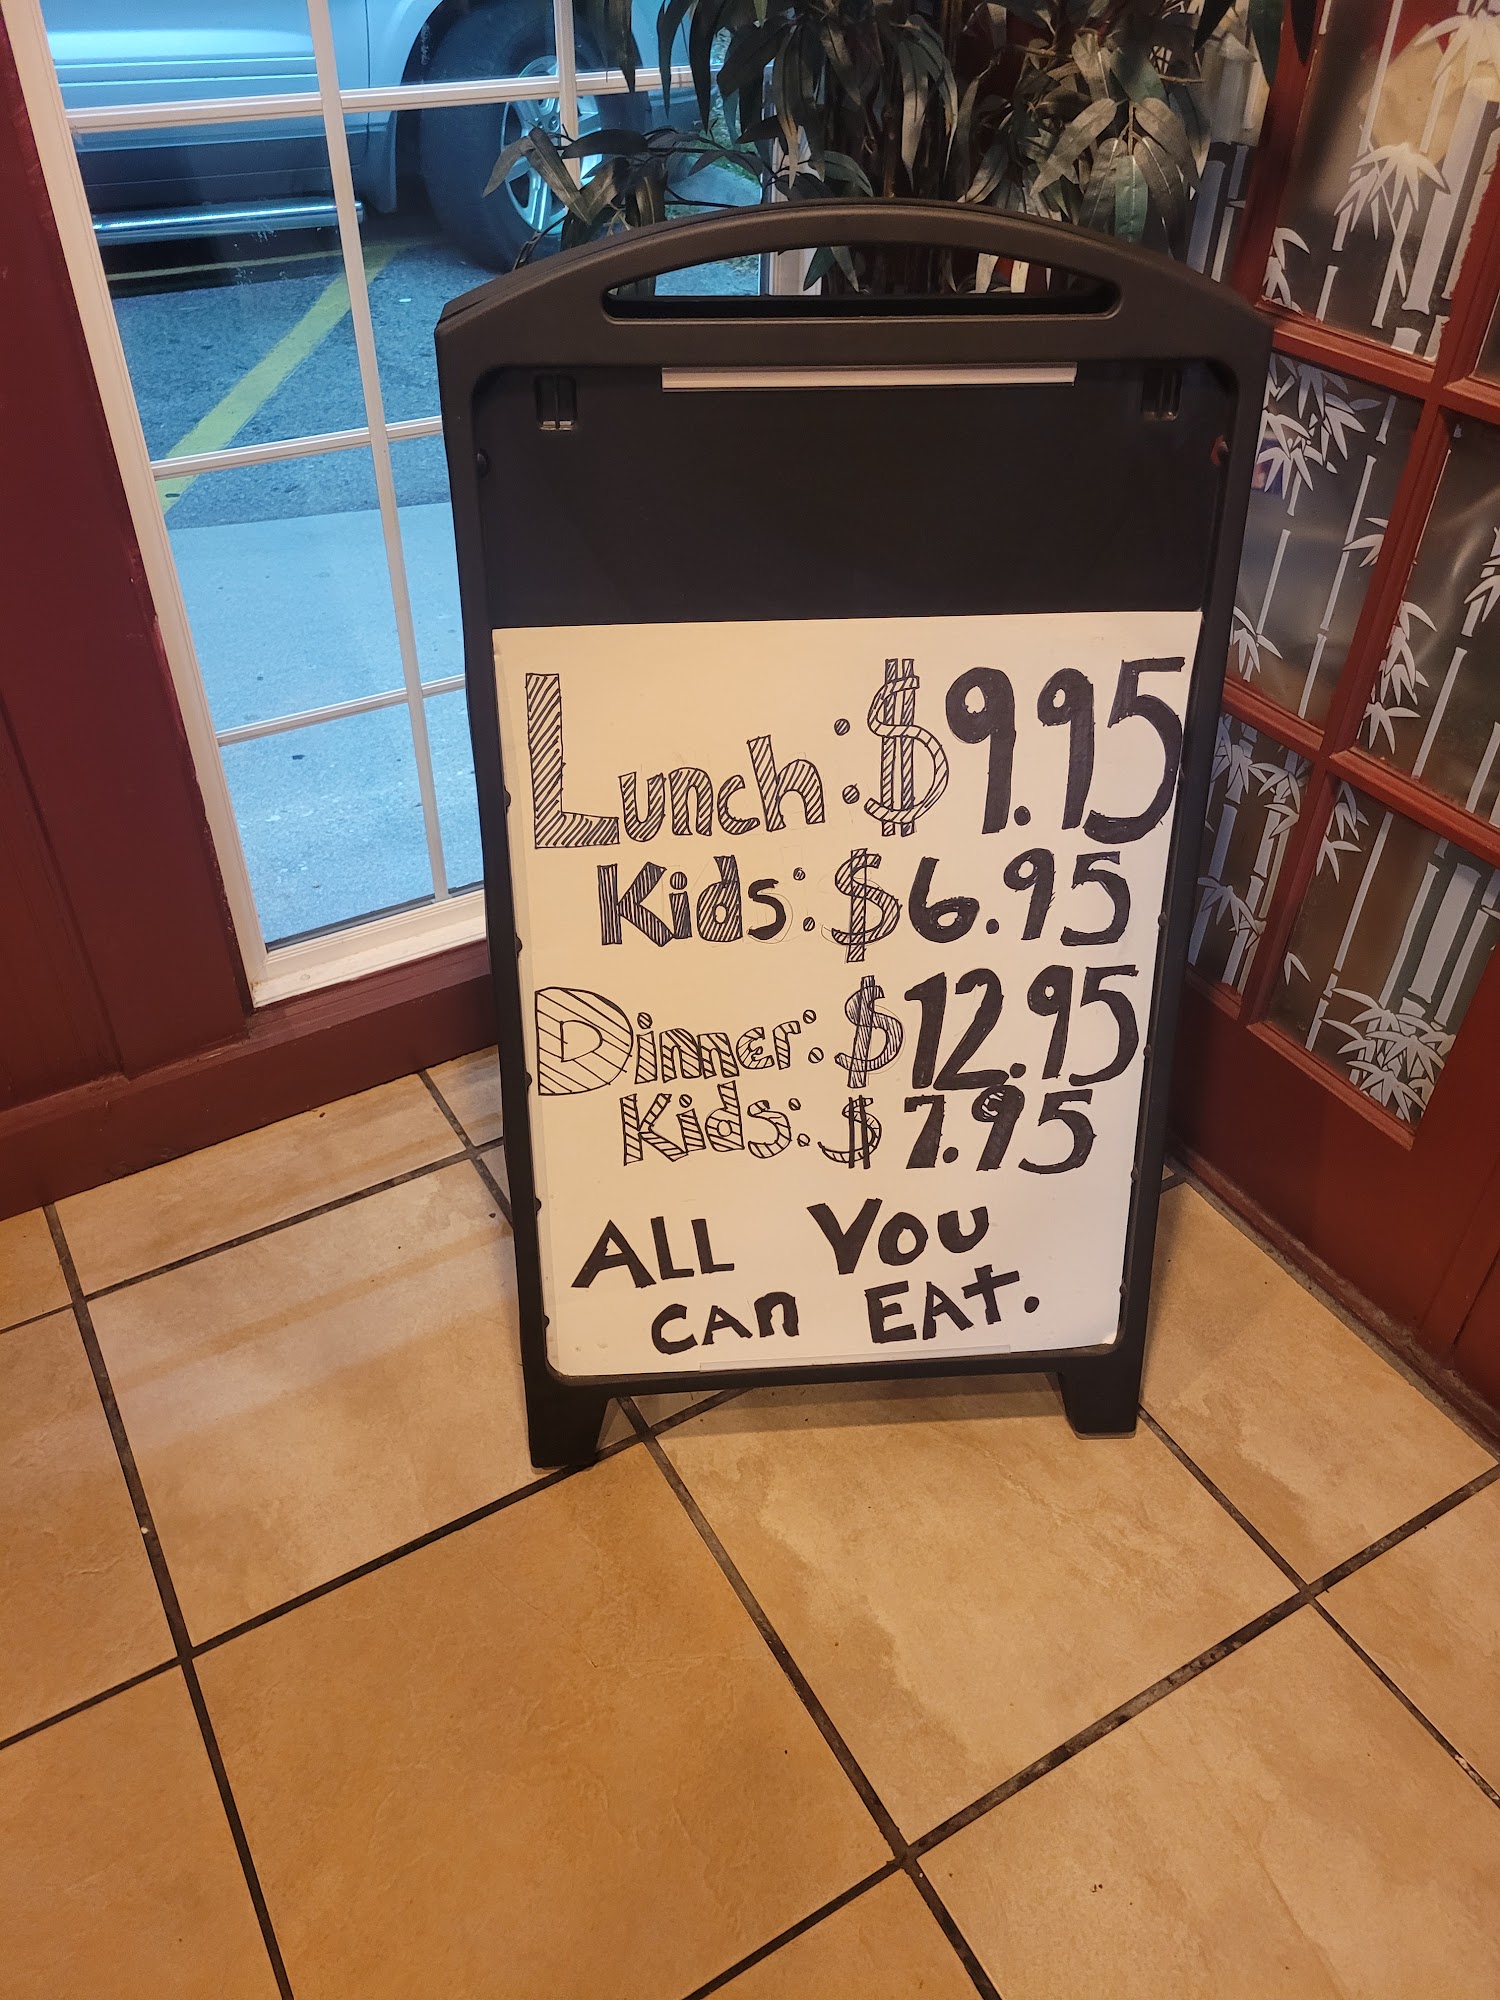 Lunch: $9.95
Kids: $6.95
Dinner: $12.95
Kids: $7.95
ALL YOU
CAn EAt.